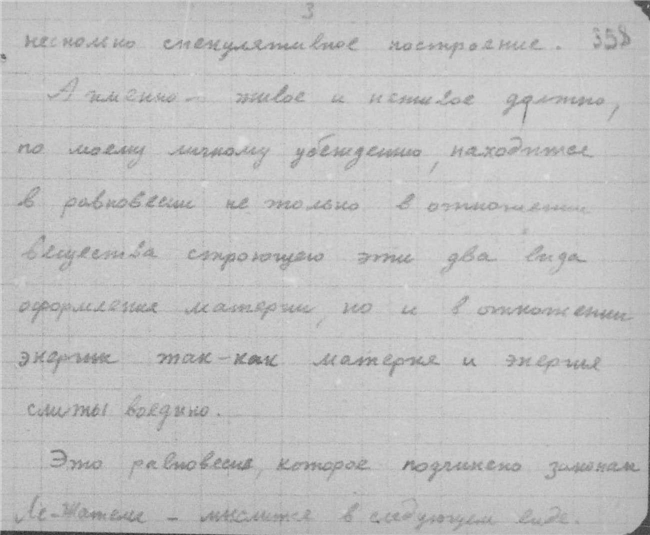 3
несколько спекулятивное построение. 358
А именно – живое и неживое должно,
по моему личному убеждению, находиться
в равновесии не только в отношении
вещества строющего эти два вида
оформления материи, но и в отношении
энергии так-как материя и энергия
слиты воедино.
Это равновесие, которое подчинено законам
Ле-Шателье – мыслится в следующем виде.